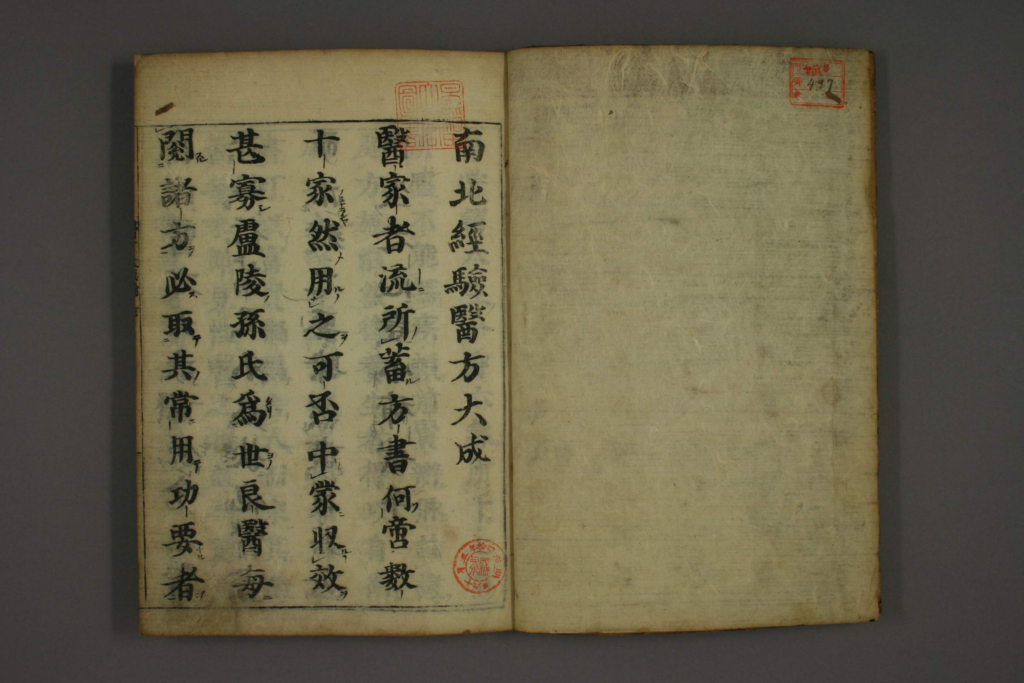 南北經驗醫方大成
醫家者流所蓄方書何啻數
十家然用之可否中蒙收效
甚寡盧陵孫氏爲世良醫每
閱諸方必取其常用功要者